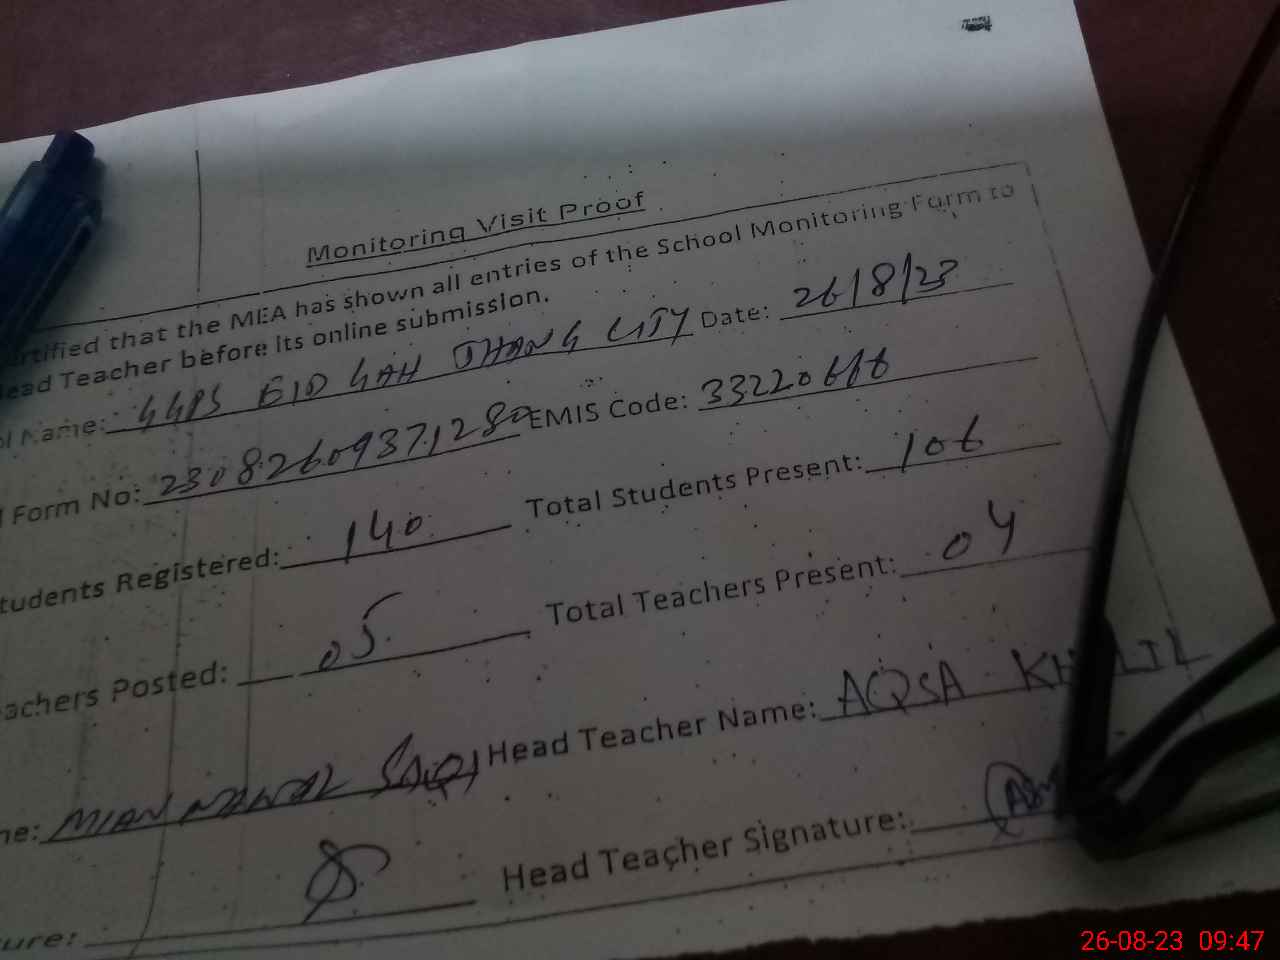 Monitoring Visit Proof
ertified that the MEA has shown all entries of the School Monitoring Form to
ead Teacher before its online submission.
ol Name: GGPS EID GAH JHANG CITY Date: 26/8/23
l Form No: 23082609371280 EMIS Code: 33220666
tudents Registered: 140 Total Students Present: 106
achers Posted: 05 Total Teachers Present: 04
ne: MIAN Head Teacher Name: AQSA KHALIL
ure: Head Teacher Signature:
26-08-23 09:47